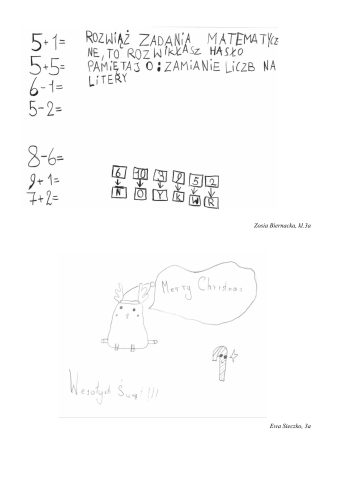 5+1=
5+5=
6-1=
5-2=
8-6=
9+1=
7+2=
ROZWIĄŻ ZADANIA MATEMATYCZ
NE, TO ROZWIKŁASZ HASŁO
PAMIĘTAJ O: ZAMIANIE LICZB NA
LITERY
6 10 3 9 5 2
N O Y K W R
Zosia Biernacka, kl.3a
Merry Christmas
Wesołych Świąt!!!
Ewa Steczko, 3a